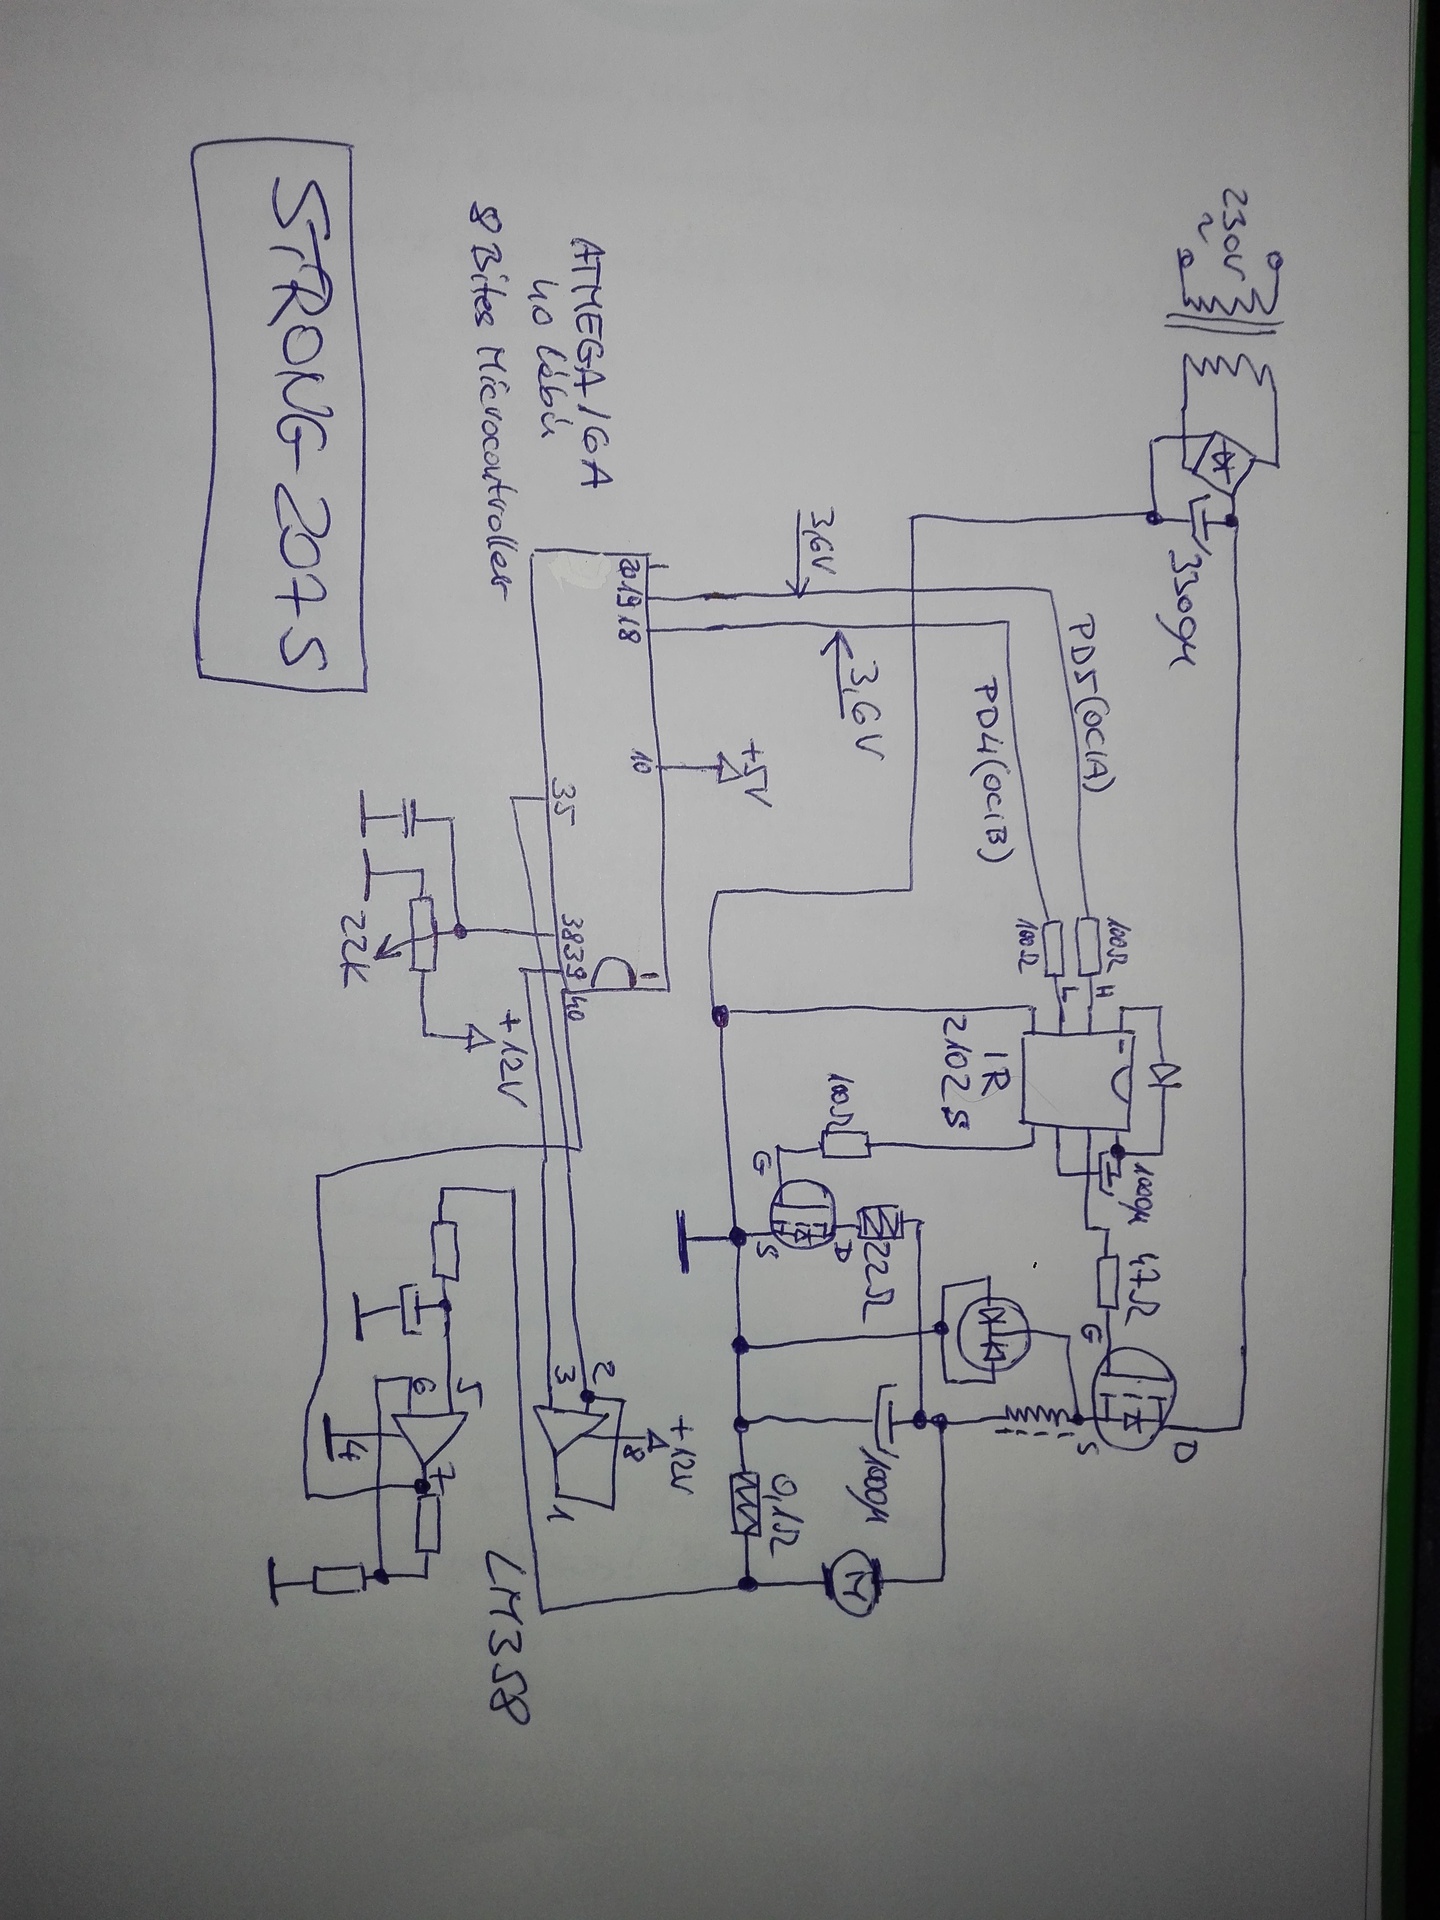 230V
~
330µ
PD5(OC1A)
PD4(OC1B)
3,6V
3,6V
100Ω
100Ω
H
L
IR
2102 S
100µ
47Ω
G
D
S
100Ω
G
D
S
22Ω
100µ
0,1Ω
M
+5V
20 19 18
10
1
35
38 39 40
ATMEGA16A
40 lábú
8 Bites Microcontroller
22K
+12V
2
3
8
1
+12V
5
6
7
4
LM358
STRONG-207S